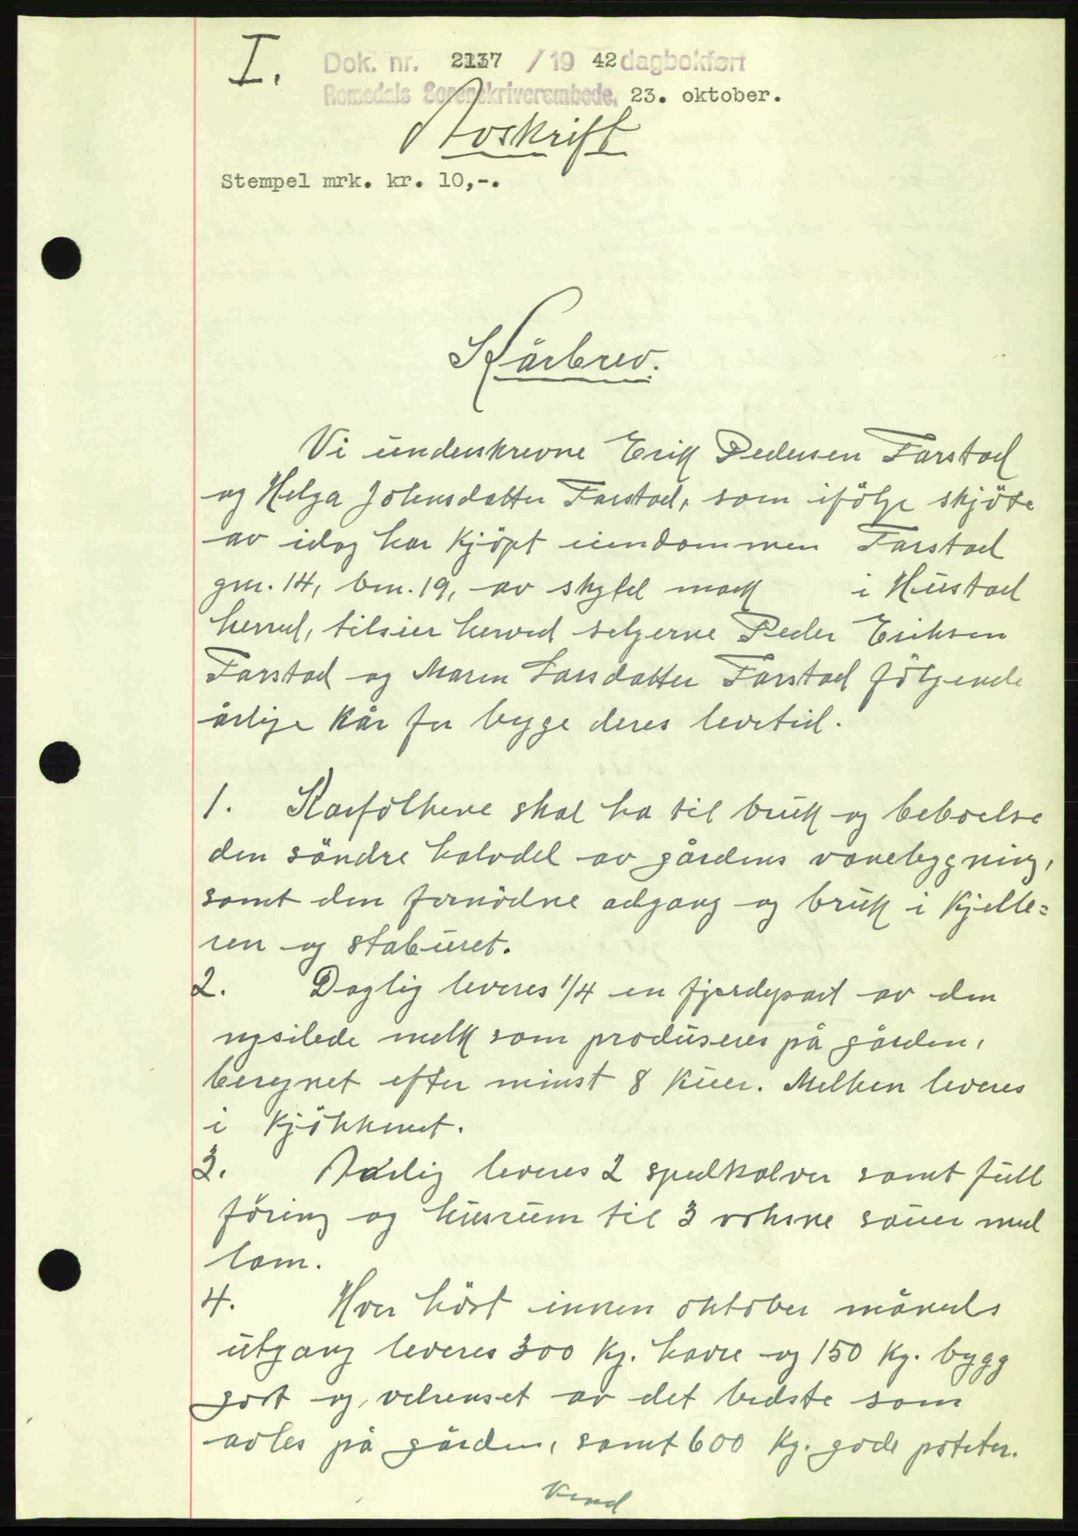 I.
Dok. nr. 2137 /19 42 dagbokført
Romsdals Sorenskriverembede, 23. oktober.
Avskrift
Stempel mrk. kr. 10,-.
Kårbrev.
Vi underskrevne Erik Pedersen Farstad
og Helga Johnsdatter Farstad, som ifölge skjöte
av idag har kjöpt eiendommen Farstad
gnr. 14, bnr. 19, av skyld mark i Hustad
herred, tilsier herved selgerne Peder Eriksen
Farstad og Maren Larsdatter Farstad fölgende
årlige kår for begge deres levetid.
1. Kårfolkene skal ha til bruk og beboelse
den söndre halvdel av gårdens vånebygning,
samt den fornödne adgang og bruk i kjelle=
ren og staburet.
2. Daglig leveres 1/4 en fjerdepart av den
nysilede melk som produseres på gården,
beregnet efter minst 8 kuer. Melken leveres
i kjökkenet.
3. Årlig leveres 2 spedkalver samt full
föring og husrum til 3 voksne sauer med
lam.
4. Hver höst innen oktober måneds
utgang leveres 300 kg. havre og 150 kg. bygg
tört og velrenset av det bedste som
avles på gården, samt 600 kg. gode poteter.
Vend